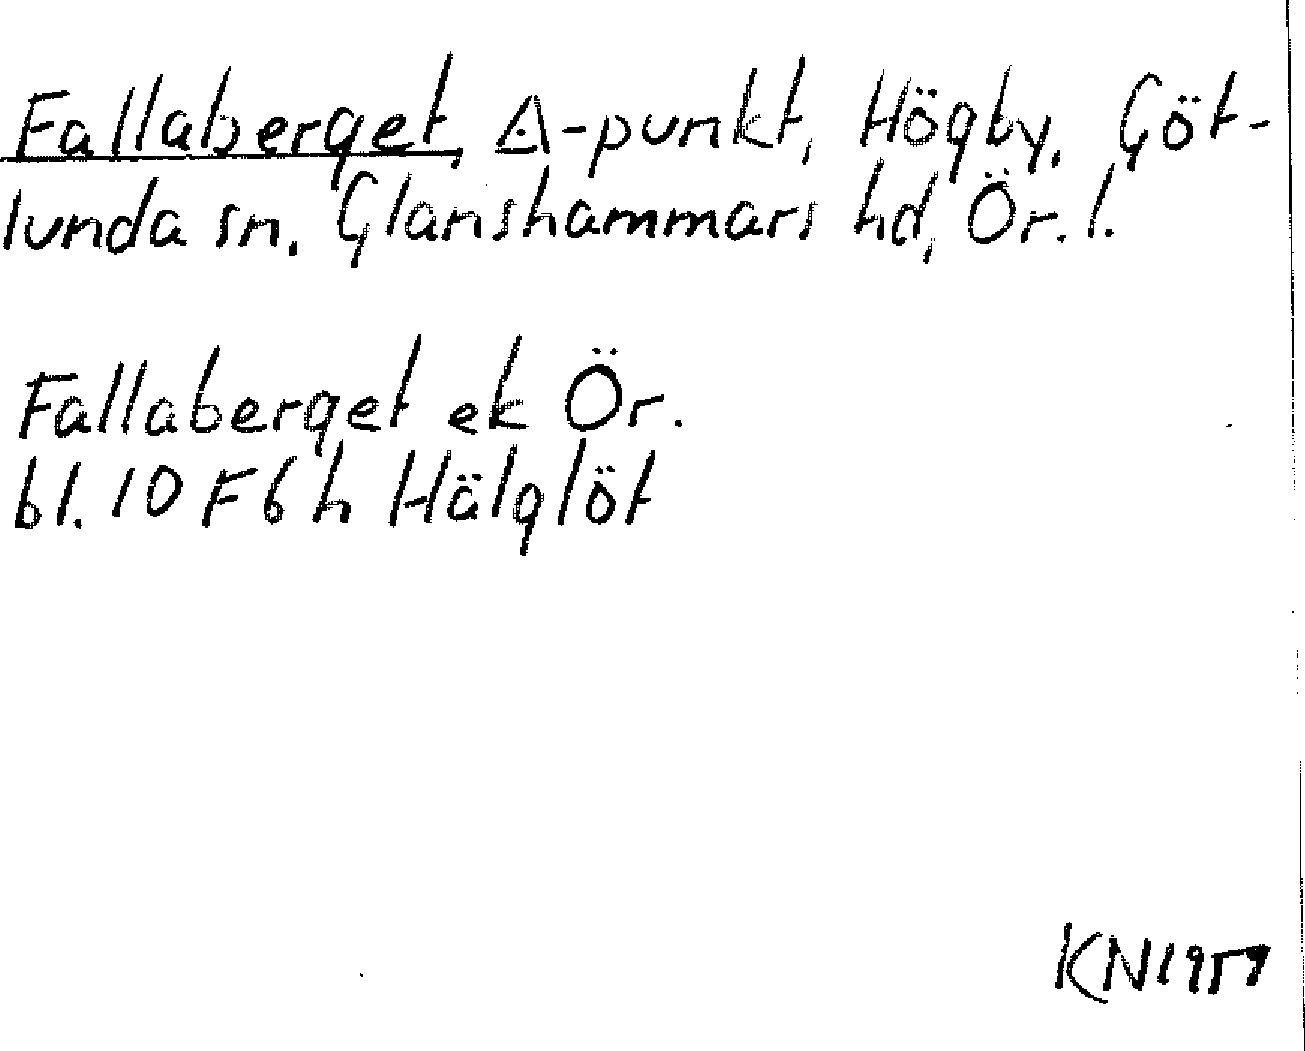 Fallaberget, △-punkt, Högby, Göt-
lunda sn. Glanshammars hd, Ör. l.
Fallaberget ek Ör.
bl. 10 F 6 h Hälglöt
KN 1959